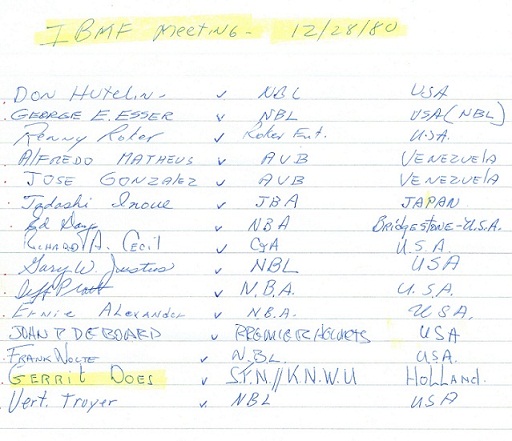 IBMF Meeting - 12/28/80
DON HUTCLIN - ✓ NBL USA
GEORGE E. ESSER ✓ NBL USA (NBL)
Renny Roker ✓ Roker Ent. U.S.A.
AlFREDO MATHEUS ✓ AVB VENEZUELA
JOSE GONZALEZ ✓ AVB VENEZUELA
Tadashi Inoue ✓ JBA JAPAN
Ed ✓ NBA Bridgestone-U.S.A.
Richard A. Cecil ✓ U.S.A.
Gary W. Justus ✓ NBL USA
Jeff ✓ N.B.A. U.S.A.
Ernie Alexander ✓ N.B.A. U.S.A.
JOHN P DE BOARD ✓ PREMIER HELMETS USA
FRANK NOLTE ✓ N.BL. USA.
GERRIT DOES ✓ S.T.N.//K.N.W.U Holland.
Vert. Troyer ✓ NBL USA